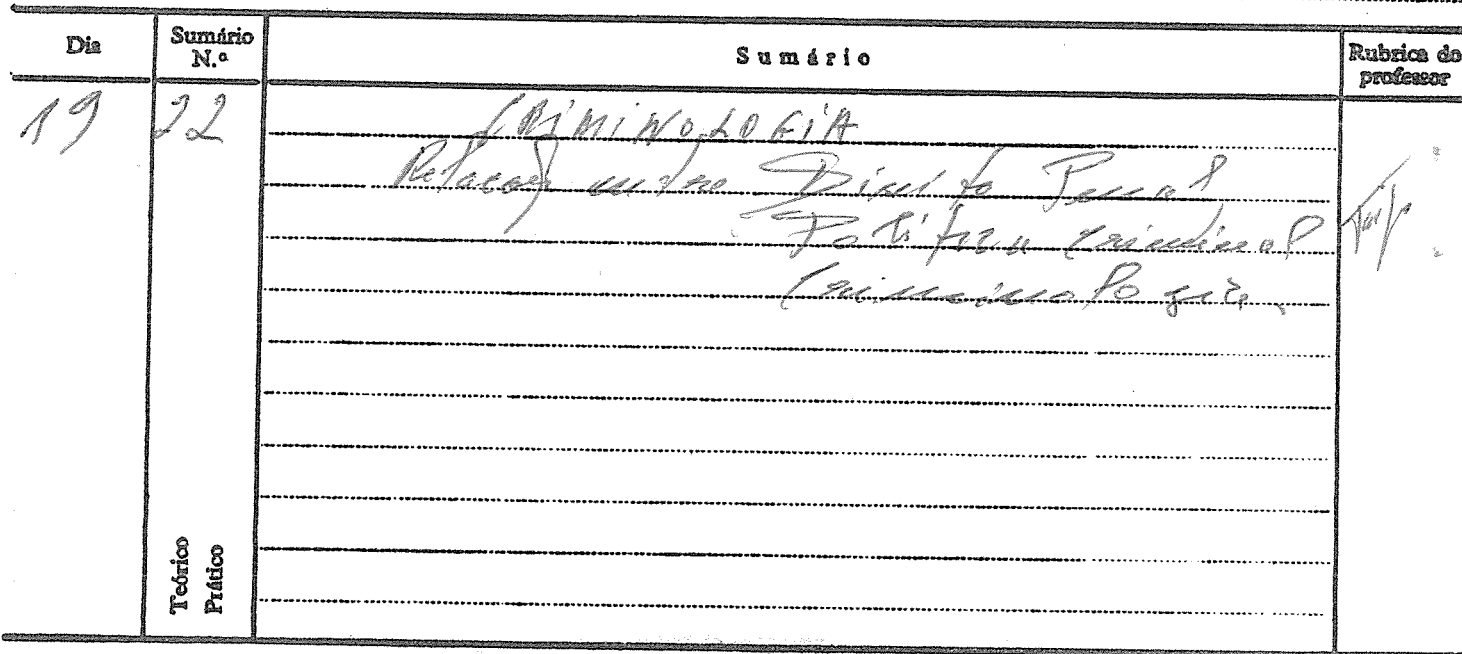 Dia Sumário N.º Sumário Rubrica do professor
19 22 CRIMINOLOGIA
Relação entre Direito Penal,
Política Criminal
Criminologia.
Teórico
Prático